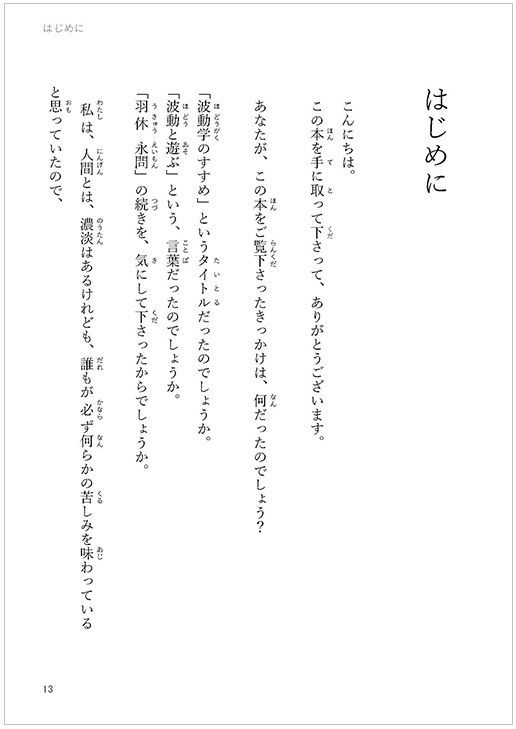 はじめに
はじめに
こんにちは。
この本を手に取って下さって、ありがとうございます。
あなたが、この本をご覧下さったきっかけは、何だったのでしょう？
「波動学のすすめ」というタイトルだったのでしょうか。
「波動と遊ぶ」という、言葉だったのでしょうか。
「羽休　永問」の続きを、気にして下さったからでしょうか。
私は、人間とは、濃淡はあるけれども、誰もが必ず何らかの苦しみを味わっている
と思っていたので、
13